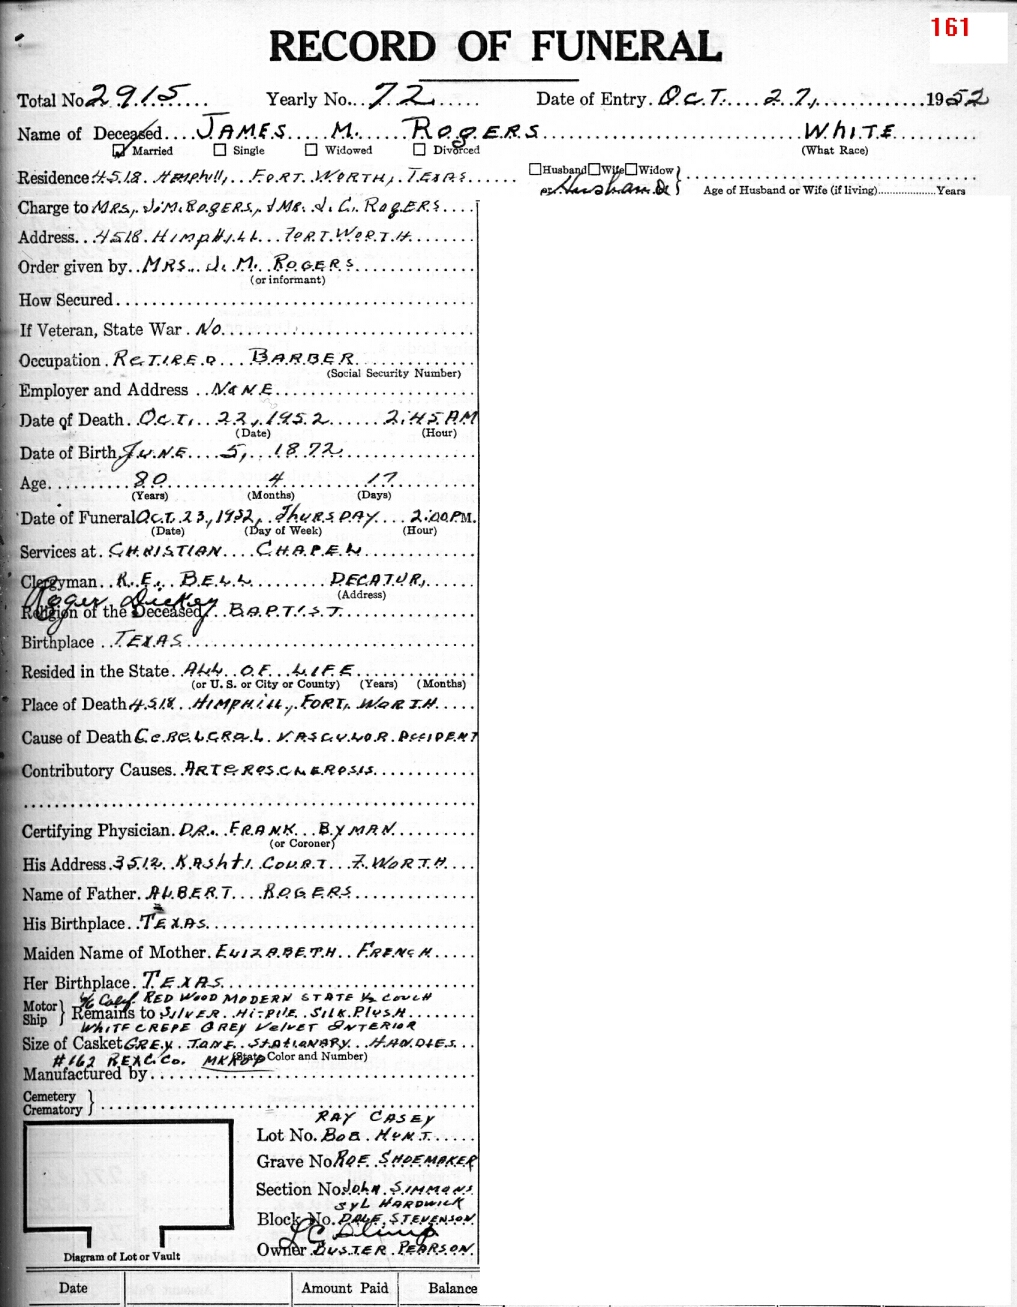 161
RECORD OF FUNERAL
Total No. 2915 Yearly No. 72 Date of Entry OCT. 27, 1952
Name of Deceased JAMES M. ROGERS WHITE
Married Single Widowed Divorced (What Race)
Residence 4518 Hemphill, FORT WORTH, TEXAS Husband Wife Widow
or Husband Age of Husband or Wife (if living) Years
Charge to MRS. J.M. ROGERS, & MR. J. C. ROGERS
Address 4518 HIMPHILL FORT WORTH
Order given by MRS. J. M. ROGERS
(or informant)
How Secured
If Veteran, State War No
Occupation RETIRED BARBER
(Social Security Number)
Employer and Address NONE
Date of Death OCT. 22, 1952 2:45 PM
(Date) (Hour)
Date of Birth JUNE 5, 1872
Age 80 4 17
(Years) (Months) (Days)
Date of Funeral OCT. 23, 1952, THURSDAY 2:00 P.M.
(Date) (Day of Week) (Hour)
Services at CHRISTIAN CHAPEL
Clergyman R. E. BELL DECATUR,
(Address)
Roger Dickey
Religion of the Deceased BAPTIST
Birthplace TEXAS
Resided in the State ALL OF LIFE
(or U. S. or City or County) (Years) (Months)
Place of Death 4518 HIMPHILL, FORT WORTH
Cause of Death CEREBERAL VASCULAR ACCIDENT
Contributory Causes ARTEROSCLEROSIS
Certifying Physician DR. FRANK BYMAN
(or Coroner)
His Address 3512 COURT F. WORTH
Name of Father ALBERT ROGERS
His Birthplace TEXAS
Maiden Name of Mother ELIZABETH FRENCH
Her Birthplace TEXAS
RED WOOD MODERN STATE 1/2 COUCH
Motor Ship Remains to SILVER HI-PILE SILK PLUSH
WHITE CREPE GREY VELVET INTERIOR
Size of Casket GREY TONE STATIONARY HANDLES
(State Color and Number)
#162
Manufactured by
Cemetery
Crematory
RAY CASEY
Lot No. BOB HUNT
Grave No. ROE SHOEMAKER
Section No. JOHN SIMMONS
SYL HARDWICK
Block No. DALE STEVENSON
Owner BUSTER PEARSON
Diagram of Lot or Vault
Date Amount Paid Balance